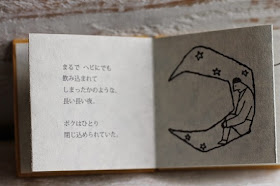 まるで ヘビにでも
飲み込まれて
しまったかのような、
長い長い夜。
ボクはひとり
閉じ込められていた。